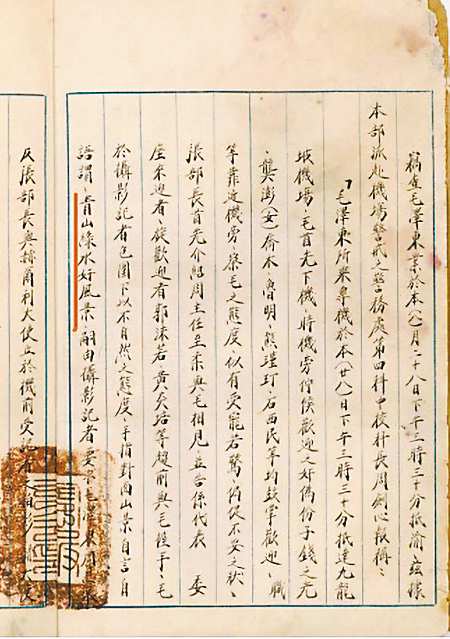 竊查毛澤東業於本(八)月二十八日下午三時三十分抵渝、茲據
本部派赴機場警戒之警務處第四科中校科長周劍心報稱：
「毛澤東所乘專機於本(廿八)日下午三時三十分抵達九龍
坡機場、毛首先下機、時機旁佇候歡迎之奸偽份子錢之光
、龔澎(女)喬木、魯明、熊瑾玎、石西民等均鼓掌歡迎、職
等靠近機旁、察毛之態度、似有受寵若驚、侷促不安之狀、
張部長首先介紹周主任至柔與毛相見、並告係代表 委
座來迎者、旋歡迎者郭沫若、黃炎培等趨前與毛握手、毛
於攝影記者包圍下以不自然之態度、手指對面山景、自言自
語謂、青山綠水好風景、嗣由攝影記者要
及張部長與赫爾利大使立於機前受記者